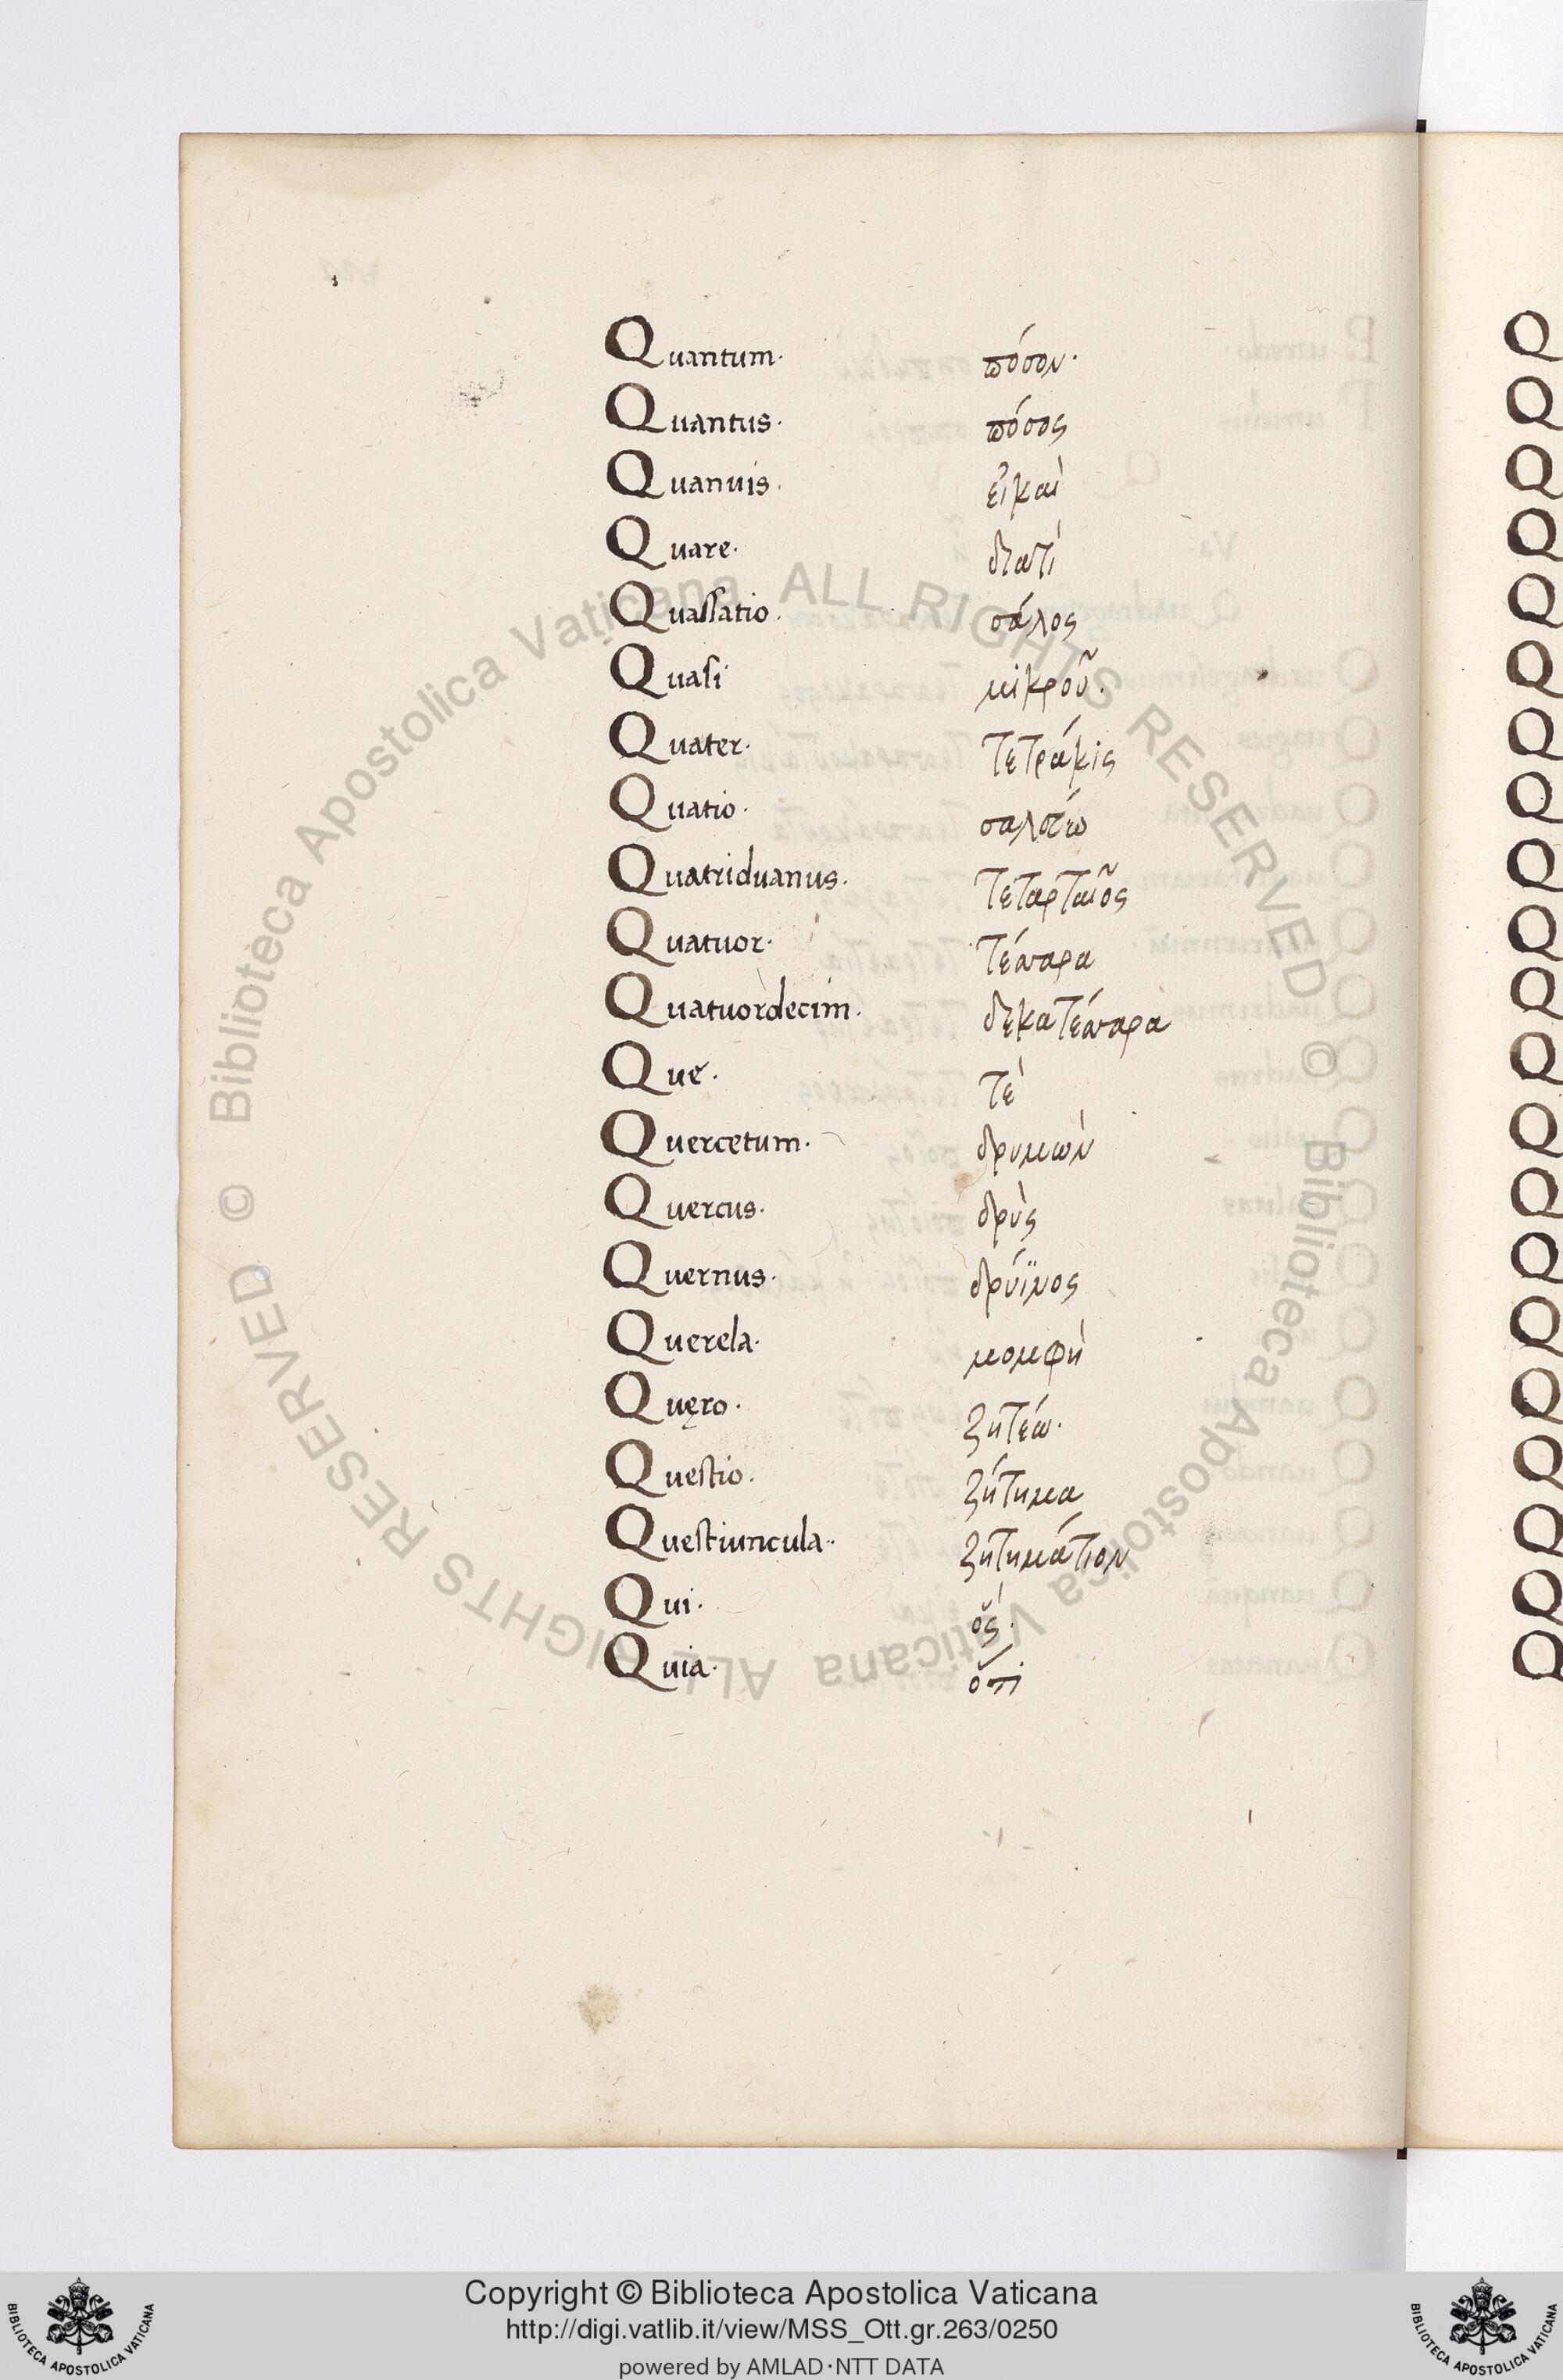 Quantum· πόσον·
Quantus· πόσος
Quanuis· εἰκαὶ
Quare· διατὶ
Quassatio· σάλος
Quasi μικροῦ·
Quater· τετράκις
Quatio·
Quatriduanus· τεταρταῖος
Quatuor· τέσσαρα
Quatuordecim· δεκατέσσαρα
Que· τὲ
Quercetum· δρυμὼν
Quercus· δρὺς
Quernus· δρύϊνος
Querela· μομφὴ
Quęro· ζητέω·
Questio· ζήτημα
Questiuncula·· ζητημάτιον
Qui· ὅς·
Quia· ὅτι
© Biblioteca Apostolica Vaticana ALL RIGHTS RESERVED
© Biblioteca Apostolica Vaticana ALL RIGHTS RESERVED
Copyright © Biblioteca Apostolica Vaticana
http://digi.vatlib.it/view/MSS_Ott.gr.263/0250
powered by AMLAD·NTT DATA
BIBLIOTECA APOSTOLICA VATICANA
BIBLIOTECA APOSTOLICA VATICANA